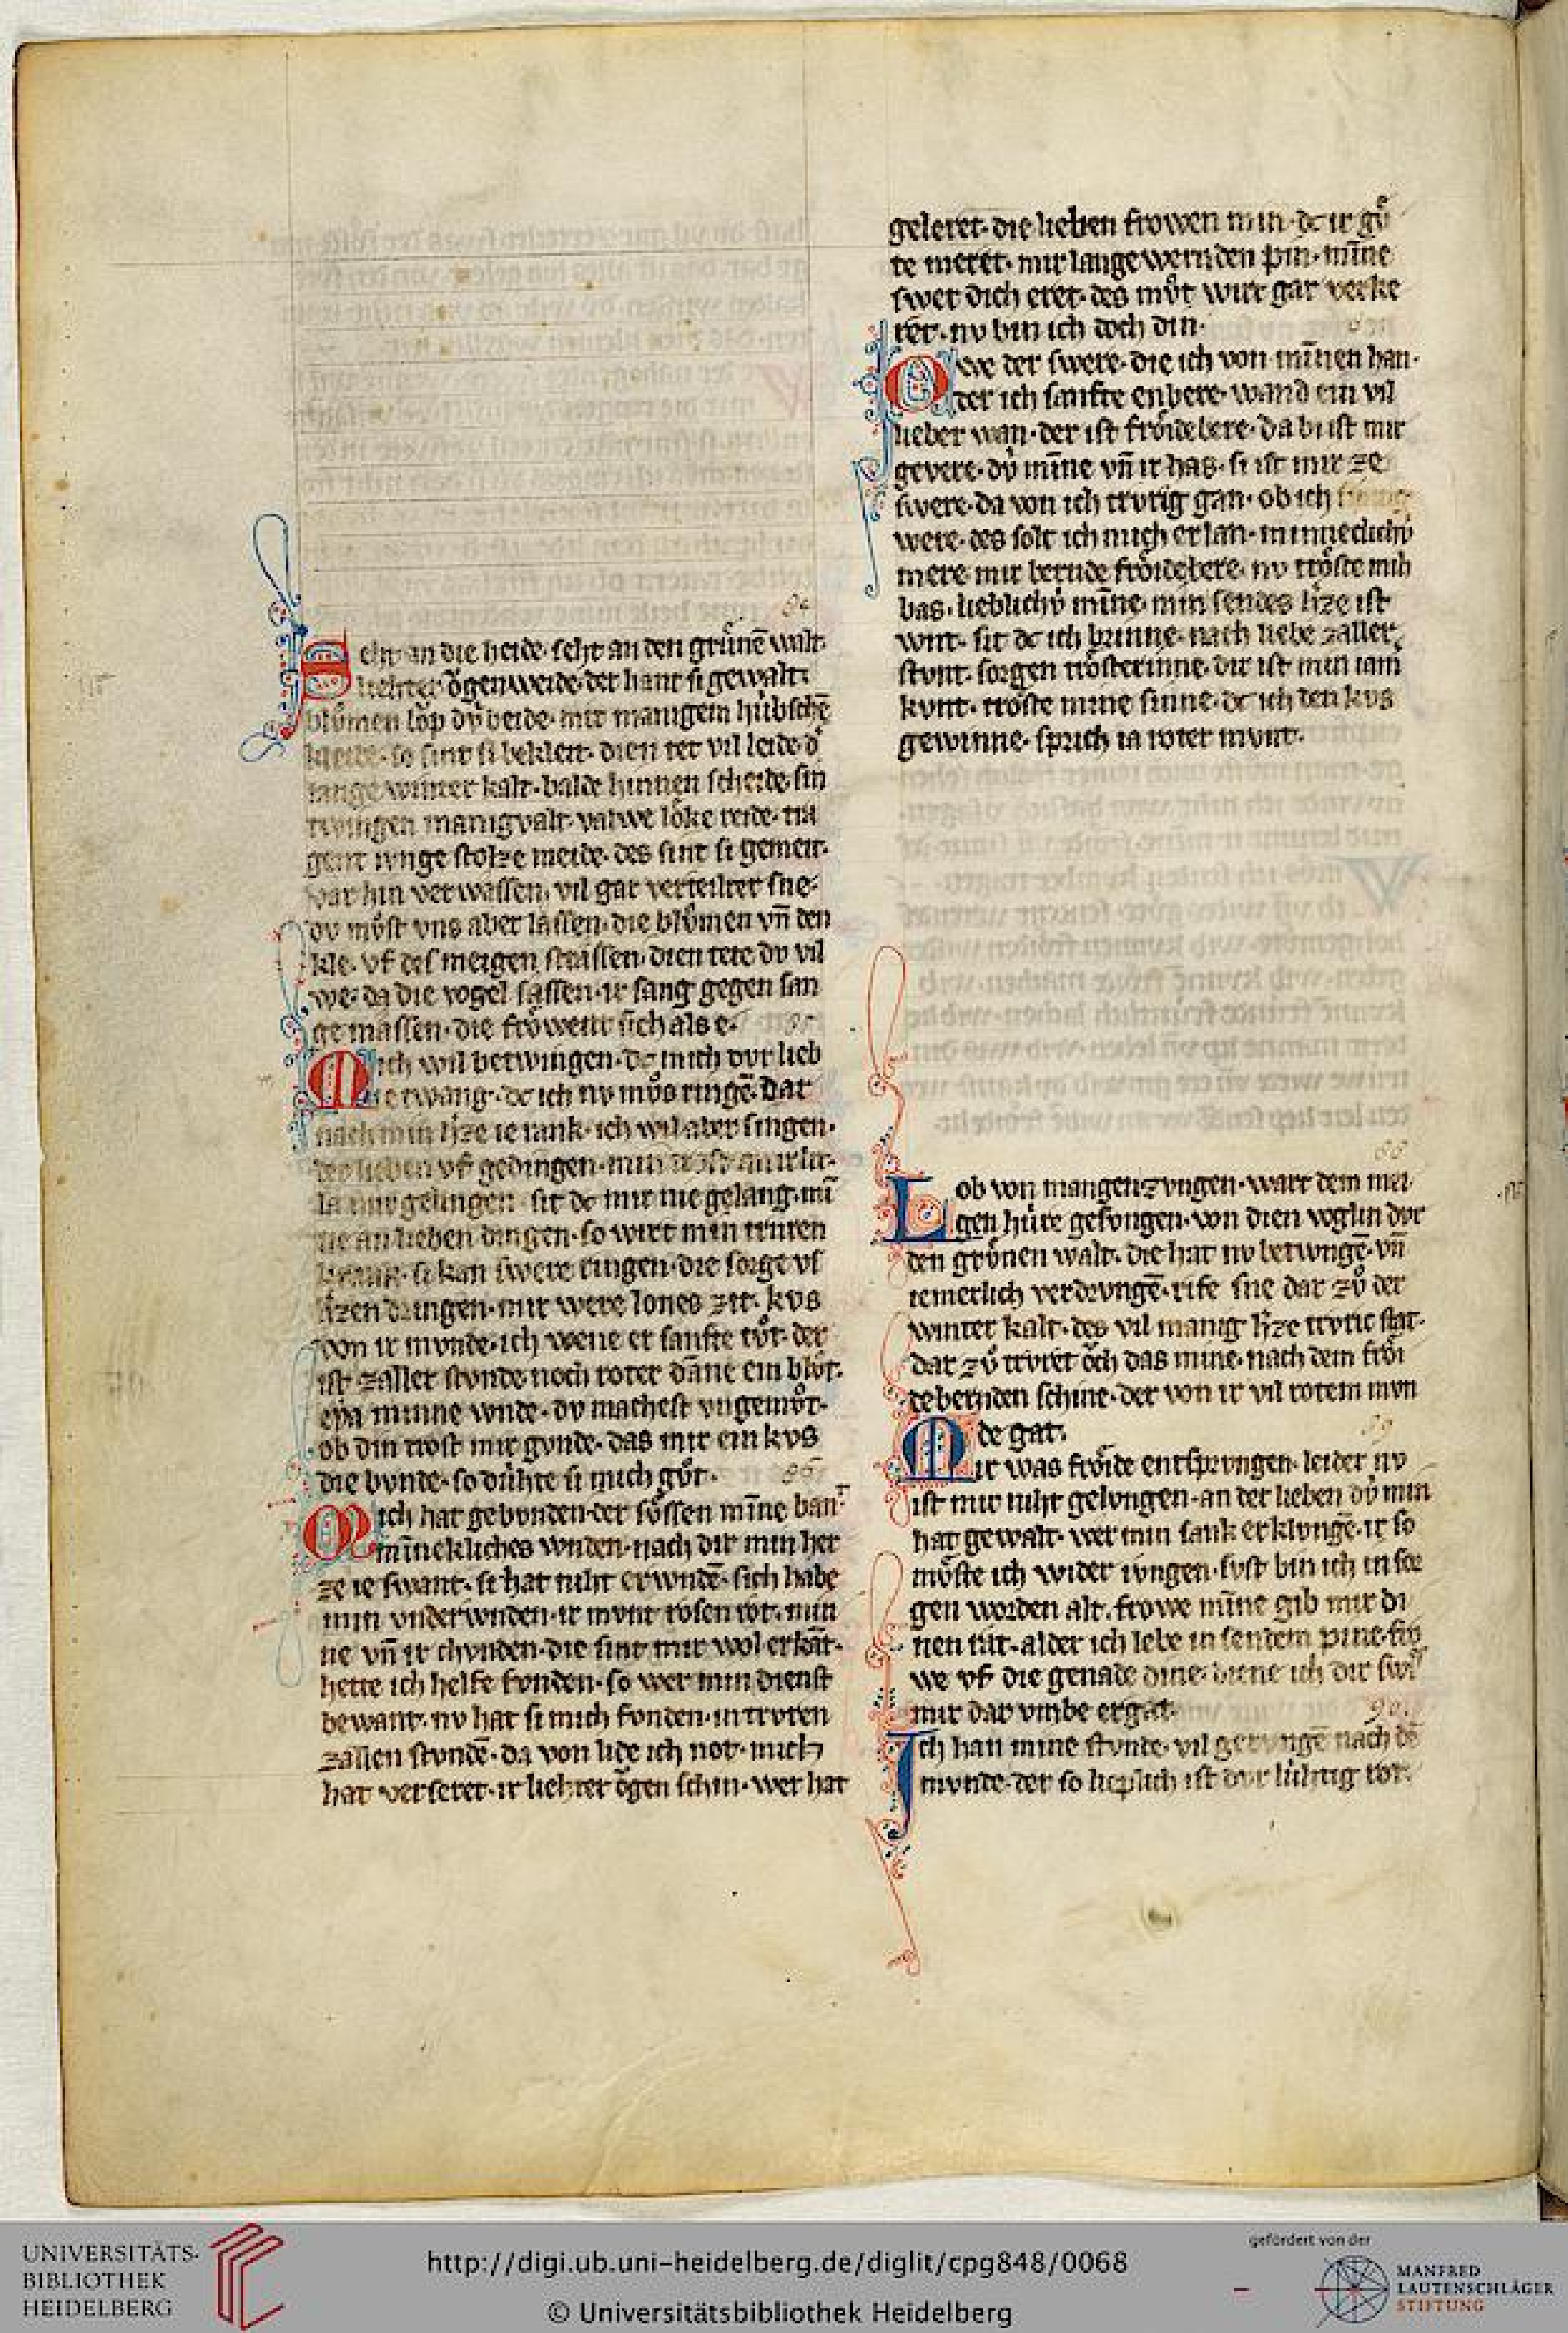 84
Seht an die heide· seht an den gruͤnē walt·
liehter oͮgenweide· der hant si gewalt·
bluͦmen loͮp dv̍ beide· mit manigem hübschē
kleide· so sint si bekleit· dien tet vil leide d͛
lange winter kalt· balde hinnen scheide sin
twingen manigvalt· valwe loͤke reide· tra
gent ivnge stolze meide· des sint si gemeit·
var hin verwassen· vil gar verteilter sne·
dv mv̊st vns aber lassen· die blv̊men vn̄ den
kle· vf des meigen strassen· dien tete dv vil
we· da die vogel sassen· ir sang gegen san
ge massen· die froͤwent sich als e·
85
Mich wil betwingen· dc mich dvr lieb
ie twang· dc ich nv mv̊s ringē· dar
nach min h̾ze ie rank· ich wil aber singen·
der lieben vf gedingen· min trost an ir lit·
la mir gelingen· sit dc mir nie gelang· mī
nie an lieben dingen· so wirt min truren
krank· si kan swere ringen· die sorge vs
h̾zen dringen· mir were lones zit· kvs
von ir mvnde· ich wene er sanfte tv̊t· der
ist zaller stvnde noch roter dāne ein blv̊t·
eyia minne wnde· dv machest vngemv̊t·
ob din trost mir gvnde· das mir ein kvs
die bvnde· so dühte si mich gv̊t·
86
Mich hat gebvnden· der sv̊ssen mīne bant
mīnekliches wnden· nach dir min her
ze ie swant· si hat niht erwndē· sich habe
min vnderwnden· ir mvnt rosen rot· min
ne vn̄ ir chvnden· die sint mir wol erkāt·
hette ich helfe fvnden· so wer min dienst
bewant· nv hat si mich fvnden· in trvren
zallen stvndē· da von lide ich not· mich
hat verseret· ir liehter oͮgen schin· wer hat
geleret· die lieben frowen min· dc ir gv̊
te meret· mir lange wernden pin· mīne
swer dich eret· des mv̊t wirt gar verke
ret· nv bin ich doch din·
Owe der swere· die ich von minnen han·
der ich sanfte enbere· wand ein vil
lieber wan· der ist froͤidebere· da bi ist mir
gevere· dv̍ mīne vn̄ ir has· si ist mir ze
swere· da von ich trvrig gan· ob ich
were· des solt ich mich erlan· minneclichv̍
mere mir bernde froͤidebere· nv troͤste mih
bas· lieblichv̍ mīne· min sendes h̾ze ist
wnt· sit dc ich brinne· nach liebe zaller
stvnt· sorgen troͤsterinne· dir ist min iam
kvnt· troͤste mine sinne· dc ich den kvs
gewinne· sprich ia roter mvnt·
88
Lob von mangen zvngen· wart dem mei
gen hüre gesvngen· von dien voglin dvr
den grv̊nen walt· die hat nv betwngē· vn̄
iemerlich verdrvngē· rife sne dar zv̊ der
winter kalt· des vil manig h̾ze trvric stat·
dar zv̊ trvret oͮch das mine· nach dem froͤi
debernden schine· der von ir vil rotem mvn
de gat·
89
Mir was froͤide entsprvngen· leider nv
ist mir niht gelvngen· an der lieben dv̍ min
hat gewalt· wer min sank erklvngē· ir so
mv̊ste ich wider ivngen· svst bin ich in sor
gen worden alt· frowe mīne gib mir di
nen rat· alder ich lebe in sendem pine· fro
we vf die genade dine· diene ich dir swi͛
mir dar vmbe ergat·
90
Ich han mine stvnde· vil gervngē nach dē
mvnde· der so lieplich ist dvr lühtig rot·
UNIVERSITÄTS-
BIBLIOTHEK
HEIDELBERG
http://digi.ub.uni-heidelberg.de/diglit/cpg848/0068
© Universitätsbibliothek Heidelberg
gefördert von der
MANFRED
LAUTENSCHLÄGER
STIFTUNG